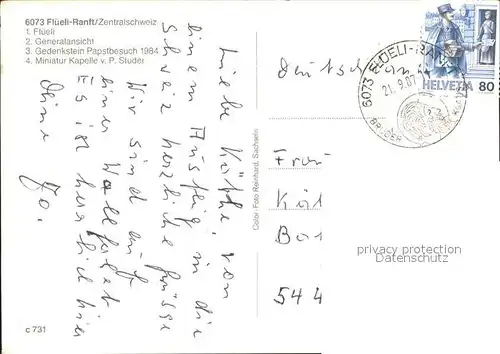 6073 Flüeli-Ranft/Zentralschweiz
1. Flüeli
2. Generalansicht
3. Gedenkstein Papstbesuch 1984
4. Miniatur Kapelle v. P. Studer
Liebe Käthe, von
einem Ausflug in die
Schweiz herzliche Grüsse
Wir sind auf
einer Wallfahrt
Es ist herrlich hier
Deine Jo.
c 731
Color-Foto Reinhard, Sachseln
6073 FLÜELI-RANFT
21. 9.07
BRUDER
HELVETIA 80
Deutschland
Frau
Kät
Bar
544
privacy protection
Datenschutz